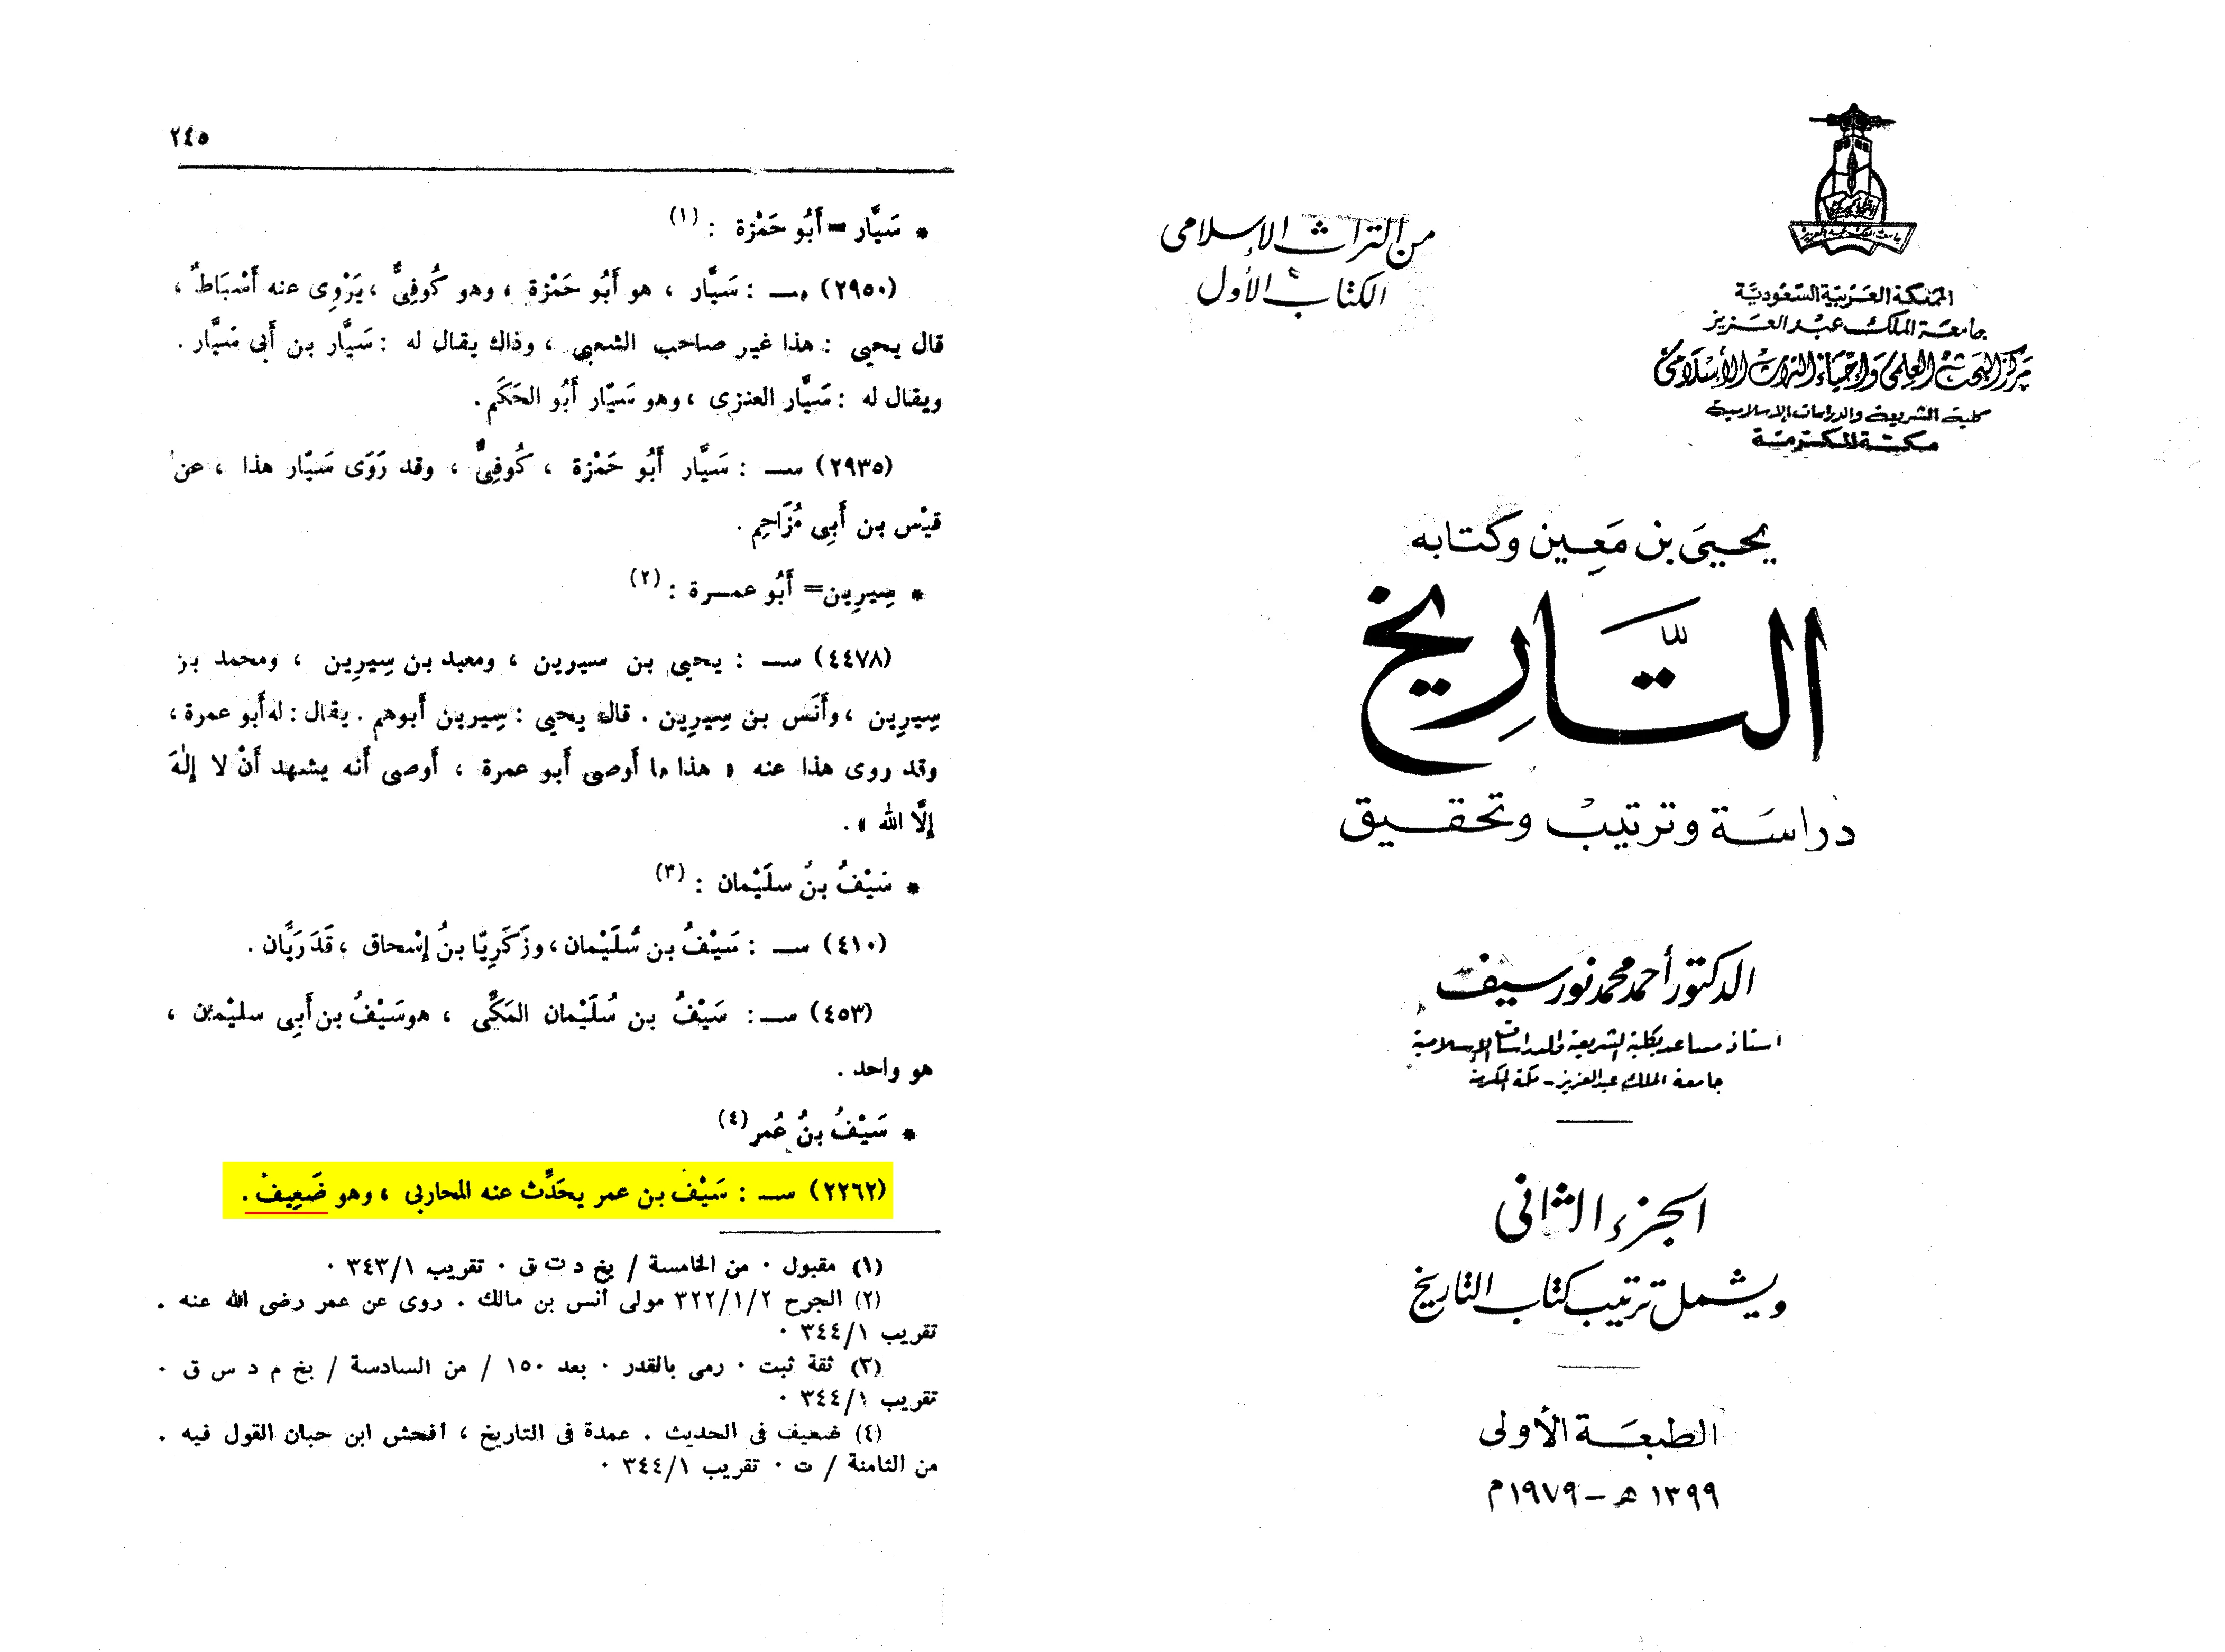 من التراث الإسلامي
الكتاب الأول
المملكة العربية السعودية
جامعة الملك عبد العزيز
مركز البحث العلمي وإحياء التراث الإسلامي
كلية الشريعة والدراسات الإسلامية
مكة المكرمة
يحيىَ بن مَعِين وكتابه
التَّاريِخ
دراسَة وترتيبْ وتحقيق
الدكتور أحمد محمد نور سيف
أستاذ مساعد بكلية الشريعة والدراسات الإسلامية
جامعة الملك عبدالعزيز - مكة المكرمة
الجزء الثانى
ويشمل ترتيب كتاب التاريخ
الطبعَة الأولى
١٣٩٩ هـ - ١٩٧٩ م
٢٤٥
* سَيَّار = أَبُو حَمْزة : (١)
(٢٩٥٠) س : سَيَّار ، هو أَبُو حَمْزة ، وهو كُوفِىٌّ ، يَرْوِى عنه أَسْبَاطٌ ،
قال يحيى : هذا غير صاحب الشعبي ، وذاك يقال له : سَيَّار بن أَبى سَيَّار .
ويقال له : سَيَّار العنزى ، وهو سَيّار أَبُو الحَكَم .
(٢٩٣٥) س : سَيَّار أَبُو حَمْزة ، كُوفِىٌّ ، وقد رَوَى سَيّار هذا ، عن
قيْس بن أَبِى مُزَاحِم .
* سِيرِين = أَبُو عمرة : (٢)
(٤٤٧٨) س : يحيى بن سيرين ، ومعبد بن سِيرِين ، ومحمد بن
سِيرِين ، وأَنَس بن سِيرِين . قال يحيى : سِيرين أَبوهم . يقال : له أَبو عمرة ،
وقد روى هذا عنه « هذا ما أَوصى أَبو عمرة ، أَوصى أَنه يشهد أَنْ لا إِلٰهَ
إِلَّا الله » .
* سَيْفُ بنُ سلَيْمان : (٣)
(٤١٠) س : سَيْفُ بن سُلَيْمان ، وزَكَرِيّا بنُ إِسْحاق ، قَدَرَيَّان .
(٤٥٣) س : سَيْفُ بن سُلَيْمان المَكِّى ، هو سَيْفُ بن أَبِى سليْمان ،
هو واحد .
* سَيْفُ بنُ عُمر (٤)
(٢٢٦٢) س : سَيْف بن عمر يحَدِّث عنه المحاربي ، وهو ضَعِيفُ .
(١) مقبول . من الخامسة / بخ د ت ق . تقريب ٣٤٣/١ .
(٢) الجرح ٣٢٢/١/٢ مولى أنس بن مالك . روى عن عمر رضى الله عنه .
تقريب ٣٤٤/١ .
(٣) ثقة ثبت . رمى بالقدر . بعد ١٥٠ / من السادسة / بخ م د س ق .
تقريب ٣٤٤/١ .
(٤) ضعيف فى الحديث . عمدة فى التاريخ ، أفحش ابن حبان القول فيه .
من الثامنة / ت . تقريب ٣٤٤/١ .